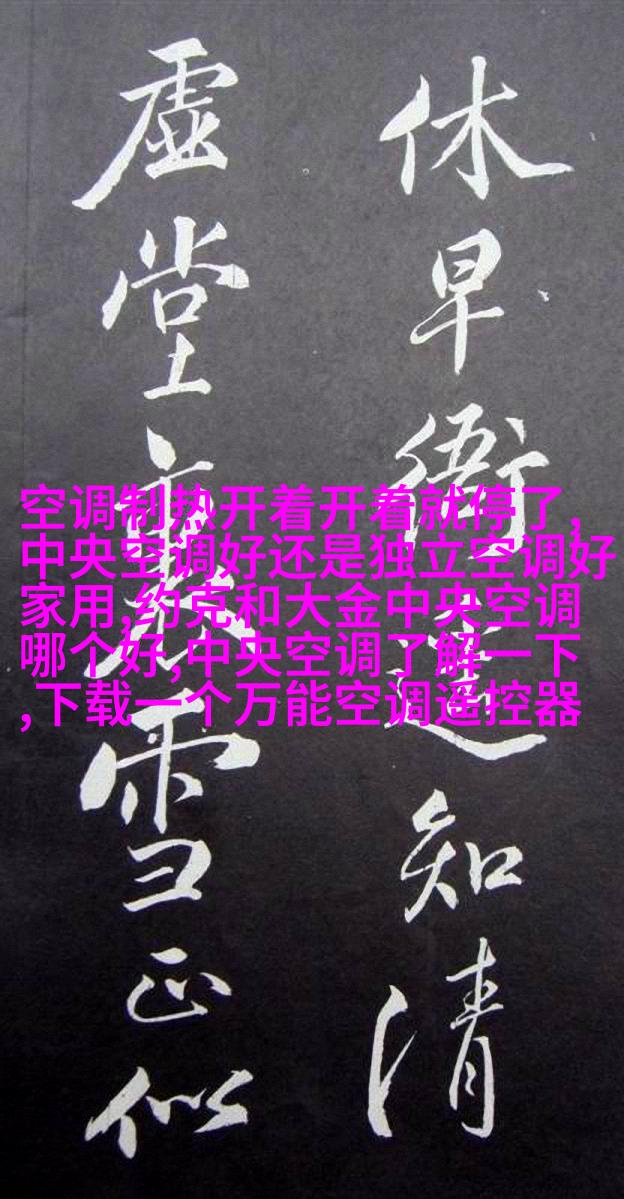 休早衙遥知清
虚堂裏雪正似
空调制热开着开着就停了,
中央空调好还是独立空调好
家用,约克和大金中央空调
哪个好,中央空调了解一下
,下载一个万能空调遥控器